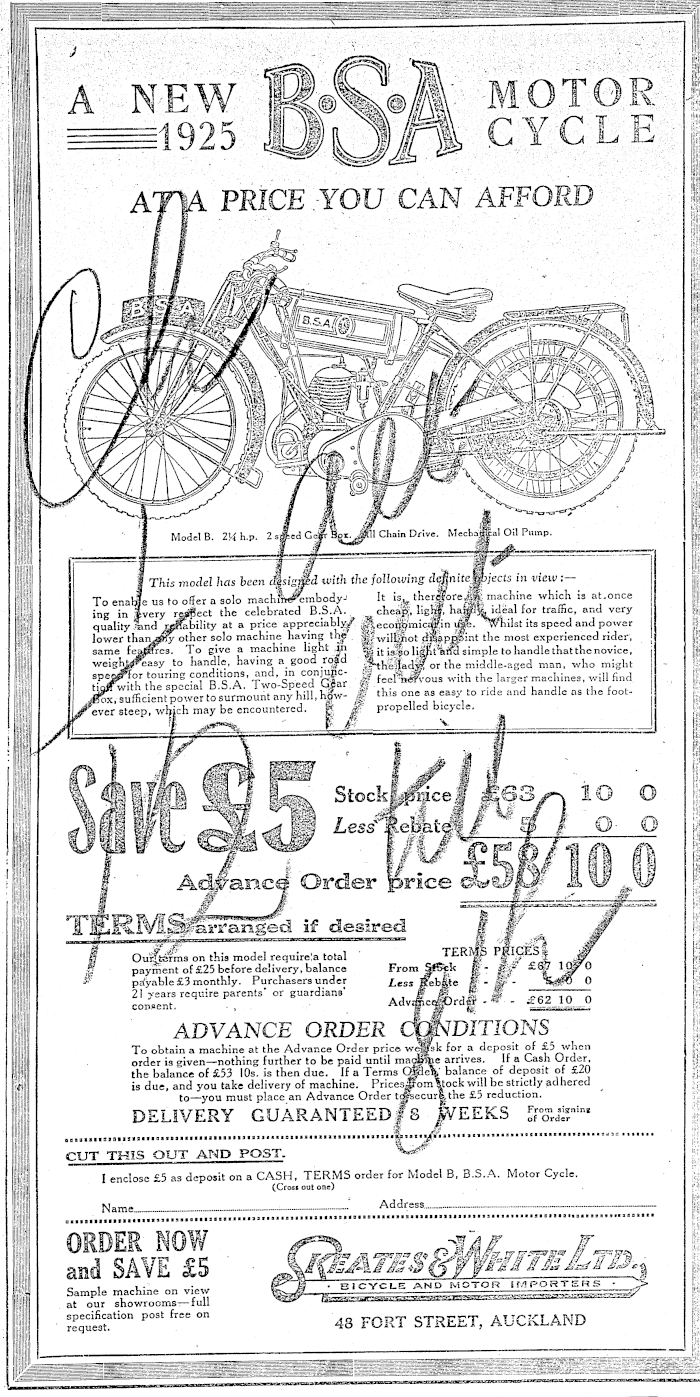 A NEW 1925 B·S·A MOTOR CYCLE
AT A PRICE YOU CAN AFFORD
B.S.A.
B.S.A
Model B. 2¼ h.p. 2 speed Gear Box. All Chain Drive. Mechanical Oil Pump.
This model has been designed with the following definite objects in view :—
To enable us to offer a solo machine embody-
ing in every respect the celebrated B.S.A.
quality and reliability at a price appreciably
lower than any other solo machine having the
same features. To give a machine light in
weight, easy to handle, having a good road
speed for touring conditions, and, in conjunc-
tion with the special B.S.A. Two-Speed Gear
Box, sufficient power to surmount any hill, how-
ever steep, which may be encountered.
It is, therefore, a machine which is at once
cheap, light, handy, ideal for traffic, and very
economical in use. Whilst its speed and power
will not disappoint the most experienced rider,
it is so light and simple to handle that the novice,
the lady, or the middle-aged man, who might
feel nervous with the larger machines, will find
this one as easy to ride and handle as the foot-
propelled bicycle.
Save £5
Stock price £63 10 0
Less Rebate 5 0 0
Advance Order price £58 10 0
TERMS arranged if desired
Our terms on this model require a total
payment of £25 before delivery, balance
payable £3 monthly. Purchasers under
21 years require parents' or guardians'
consent.
TERMS PRICES
From Stock - - £67 10 0
Less Rebate - - 5 0 0
Advance Order - - £62 10 0
ADVANCE ORDER CONDITIONS
To obtain a machine at the Advance Order price we ask for a deposit of £5 when
order is given—nothing further to be paid until machine arrives. If a Cash Order,
the balance of £53 10s. is then due. If a Terms Order, balance of deposit of £20
is due, and you take delivery of machine. Prices from stock will be strictly adhered
to—you must place an Advance Order to secure the £5 reduction.
DELIVERY GUARANTEED 8 WEEKS From signing of Order
CUT THIS OUT AND POST.
I enclose £5 as deposit on a CASH, TERMS order for Model B, B.S.A. Motor Cycle.
(Cross out one)
Name Address
ORDER NOW
and SAVE £5
Sample machine on view
at our showrooms—full
specification post free on
request.
SKEATES & WHITE LTD.
· BICYCLE AND MOTOR IMPORTERS ·
48 FORT STREET, AUCKLAND